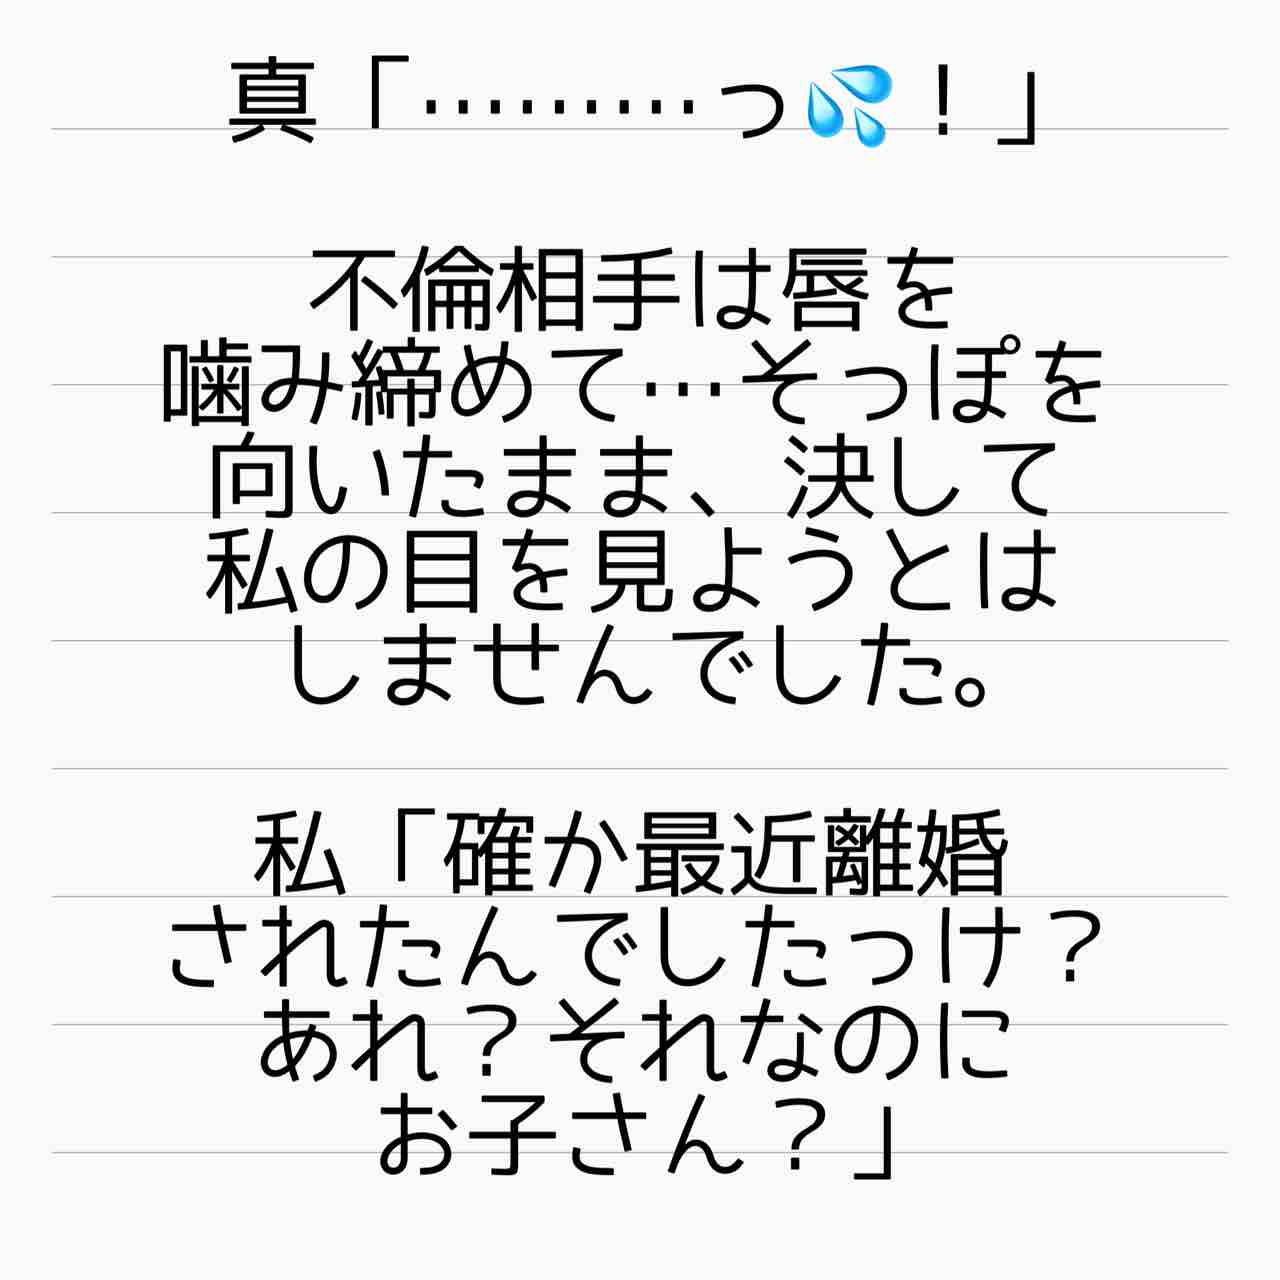 真「………っ💦！」
不倫相手は唇を
噛み締めて…そっぽを
向いたまま、決して
私の目を見ようとは
しませんでした。
私「確か最近離婚
されたんでしたっけ？
あれ？それなのに
お子さん？」